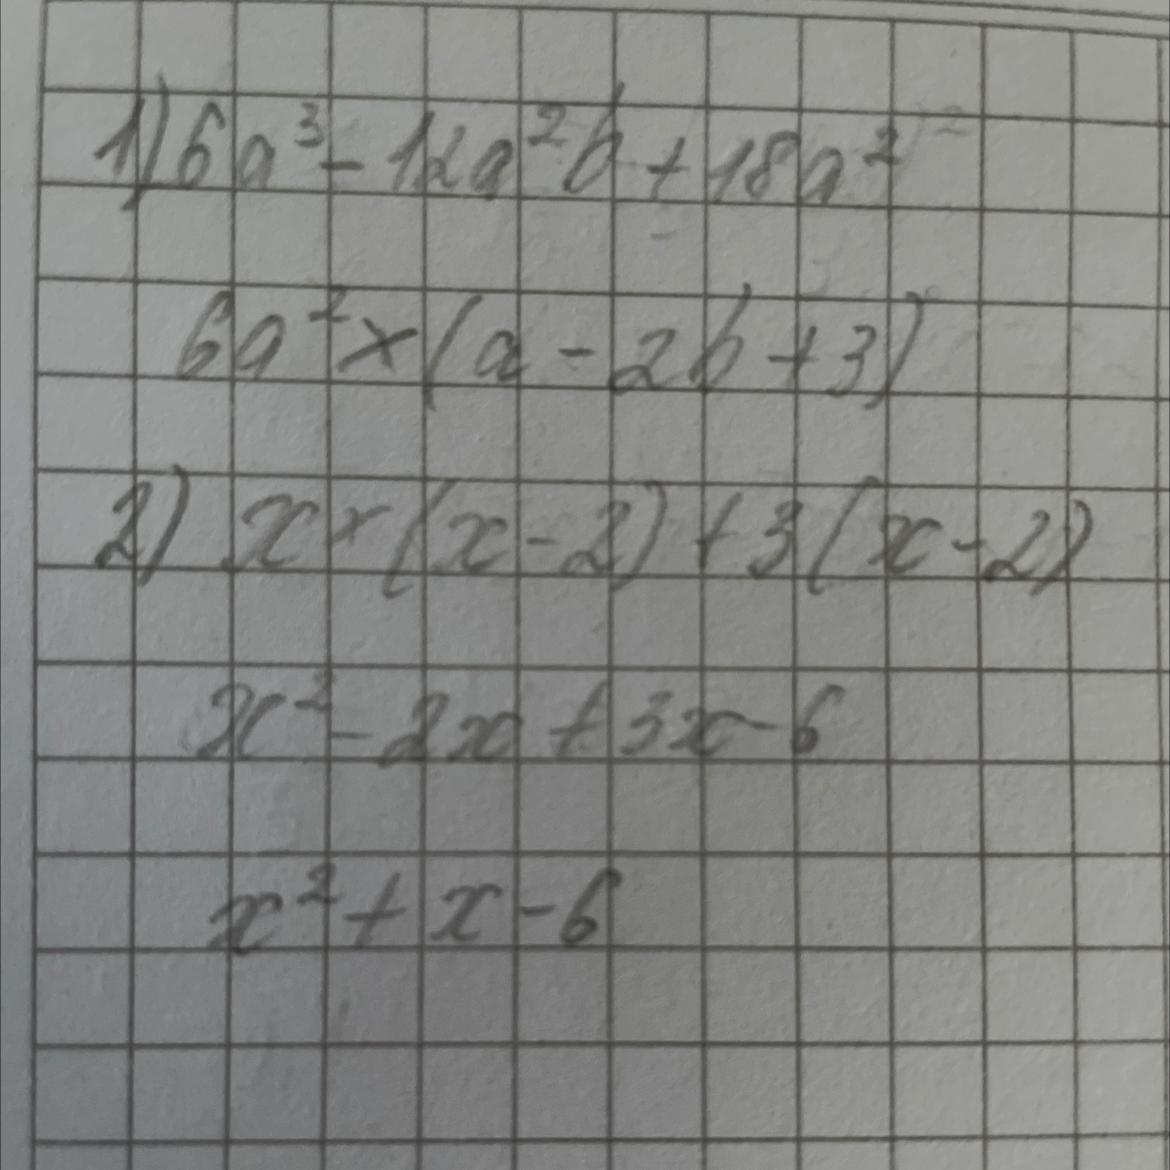 1) 6a³ - 12a²b + 18a²
6a² × (a - 2b + 3)
2) x × (x - 2) + 3 (x - 2)
x² - 2x + 3x - 6
x² + x - 6